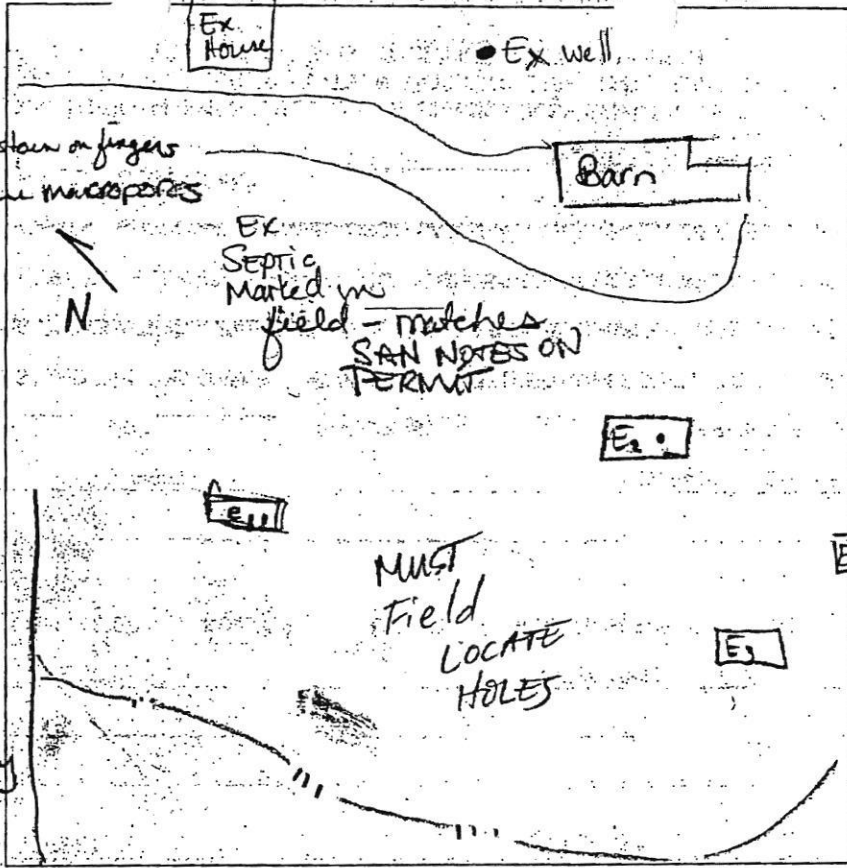 Ex
House
Ex well
on fingers
macropores
Barn
N
Ex
Septic
Marked in
field - matches
SAN NOTES ON
PERMIT
E2
MUST
Field
LOCATE
HOLES
E3